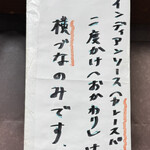 インディアンソース(カレースパ
二度かけ(おかわり)は
横づなのみです。